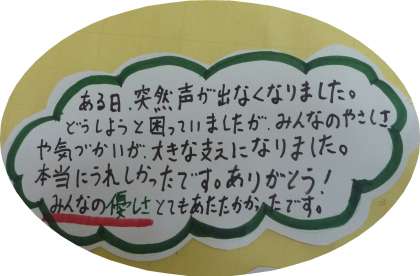 ある日、突然声が出なくなりました。
どうしようと困っていましたが、みんなのやさしさ
や気づかいが、大きな支えになりました。
本当にうれしかったです。ありがとう!
みんなの優しさとてもあたたかかったです。